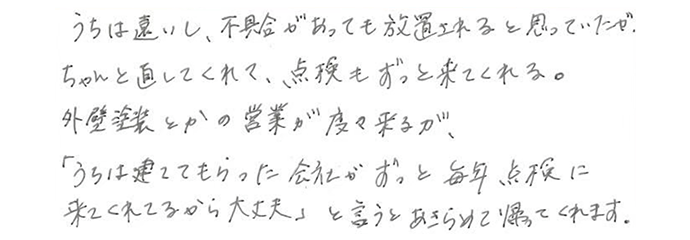 うちは遠いし、不具合があっても放置されると思っていたが、
ちゃんと直してくれて、点検もずっと来てくれる。
外壁塗装とかの営業が度々来るが、
「うちは建ててもらった会社がずっと毎年点検に
来てくれてるから大丈夫」と言うとあきらめて帰ってくれます。